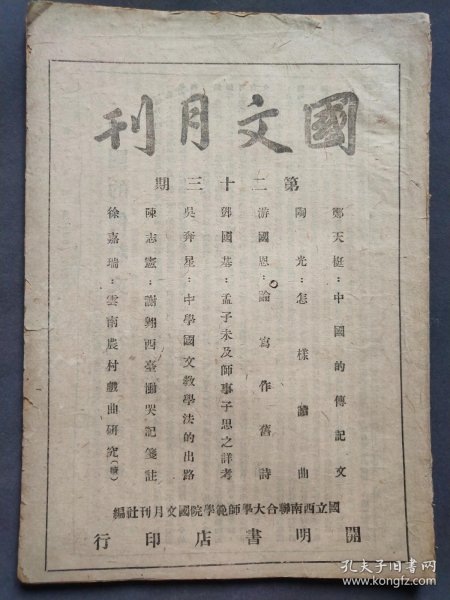 國文月刊
第二十三期
鄭天挺：中國的傳記文
陶光：怎樣讀曲
游國恩：論寫作舊詩
鄧國基：孟子未及師事子思之詳考
吳奔星：中學國文教學法的出路
陳志憲：謝翱西臺慟哭記箋註
徐嘉瑞：雲南農村戲曲研究（續）
國立西南聯合大學師範學院國文月刊社編
開明書店印行
孔夫子旧书网